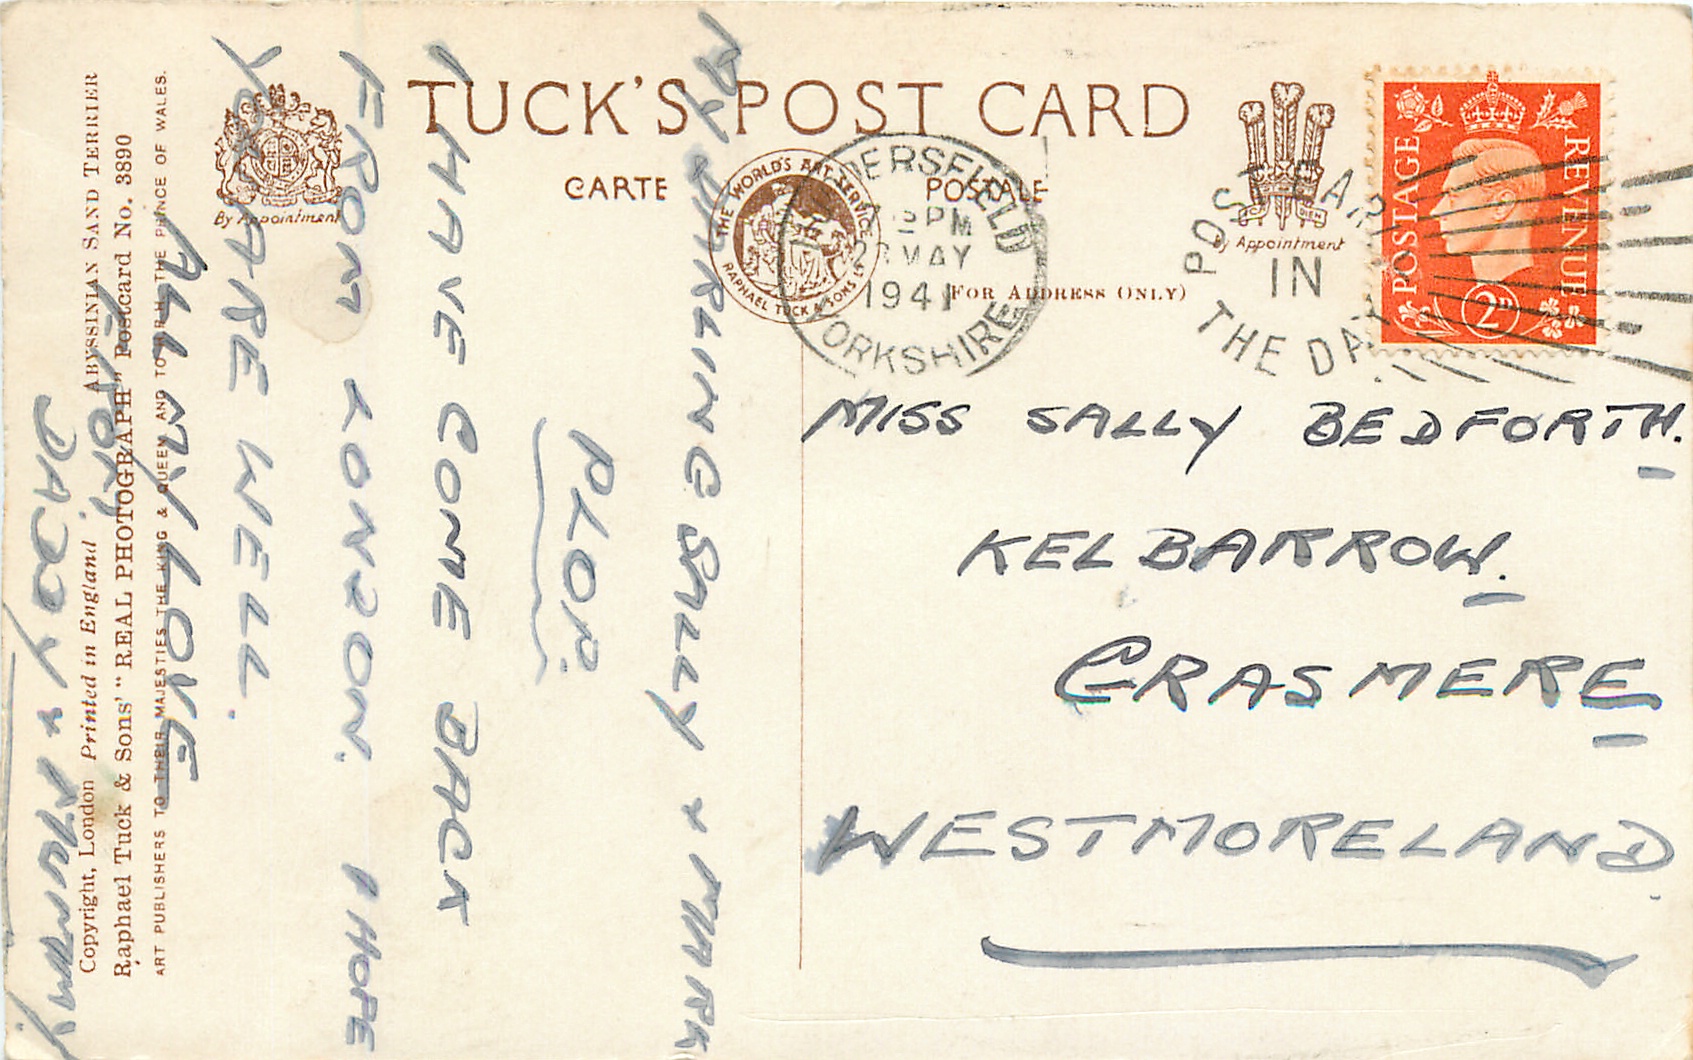 TUCK'S POST CARD
CARTE POSTALE
(FOR ADDRESS ONLY)
By Appointment
By Appointment
THE WORLD'S ART SERVICE
RAPHAEL TUCK & SONS LTD
DERSFIELD
PM
MAY
1941
YORKSHIRE
POST EARLY
IN
THE DAY
POSTAGE
REVENUE
2D
MISS SALLY BEDFORTH.
KELBARROW.
GRASMERE
WESTMORELAND.
MY DARLING SALLY & MARK
PLOP.
I HAVE COME BACK
FROM LONDON. I HOPE
YOU ARE WELL.
ALL MY LOVE
FROM
DADDY & MUMMY.
ABYSSINIAN SAND TERRIER
Copyright, London Printed in England
Raphael Tuck & Sons' "REAL PHOTOGRAPH" Postcard No. 3890
ART PUBLISHERS TO THEIR MAJESTIES THE KING & QUEEN AND TO H.R.H. THE PRINCE OF WALES.